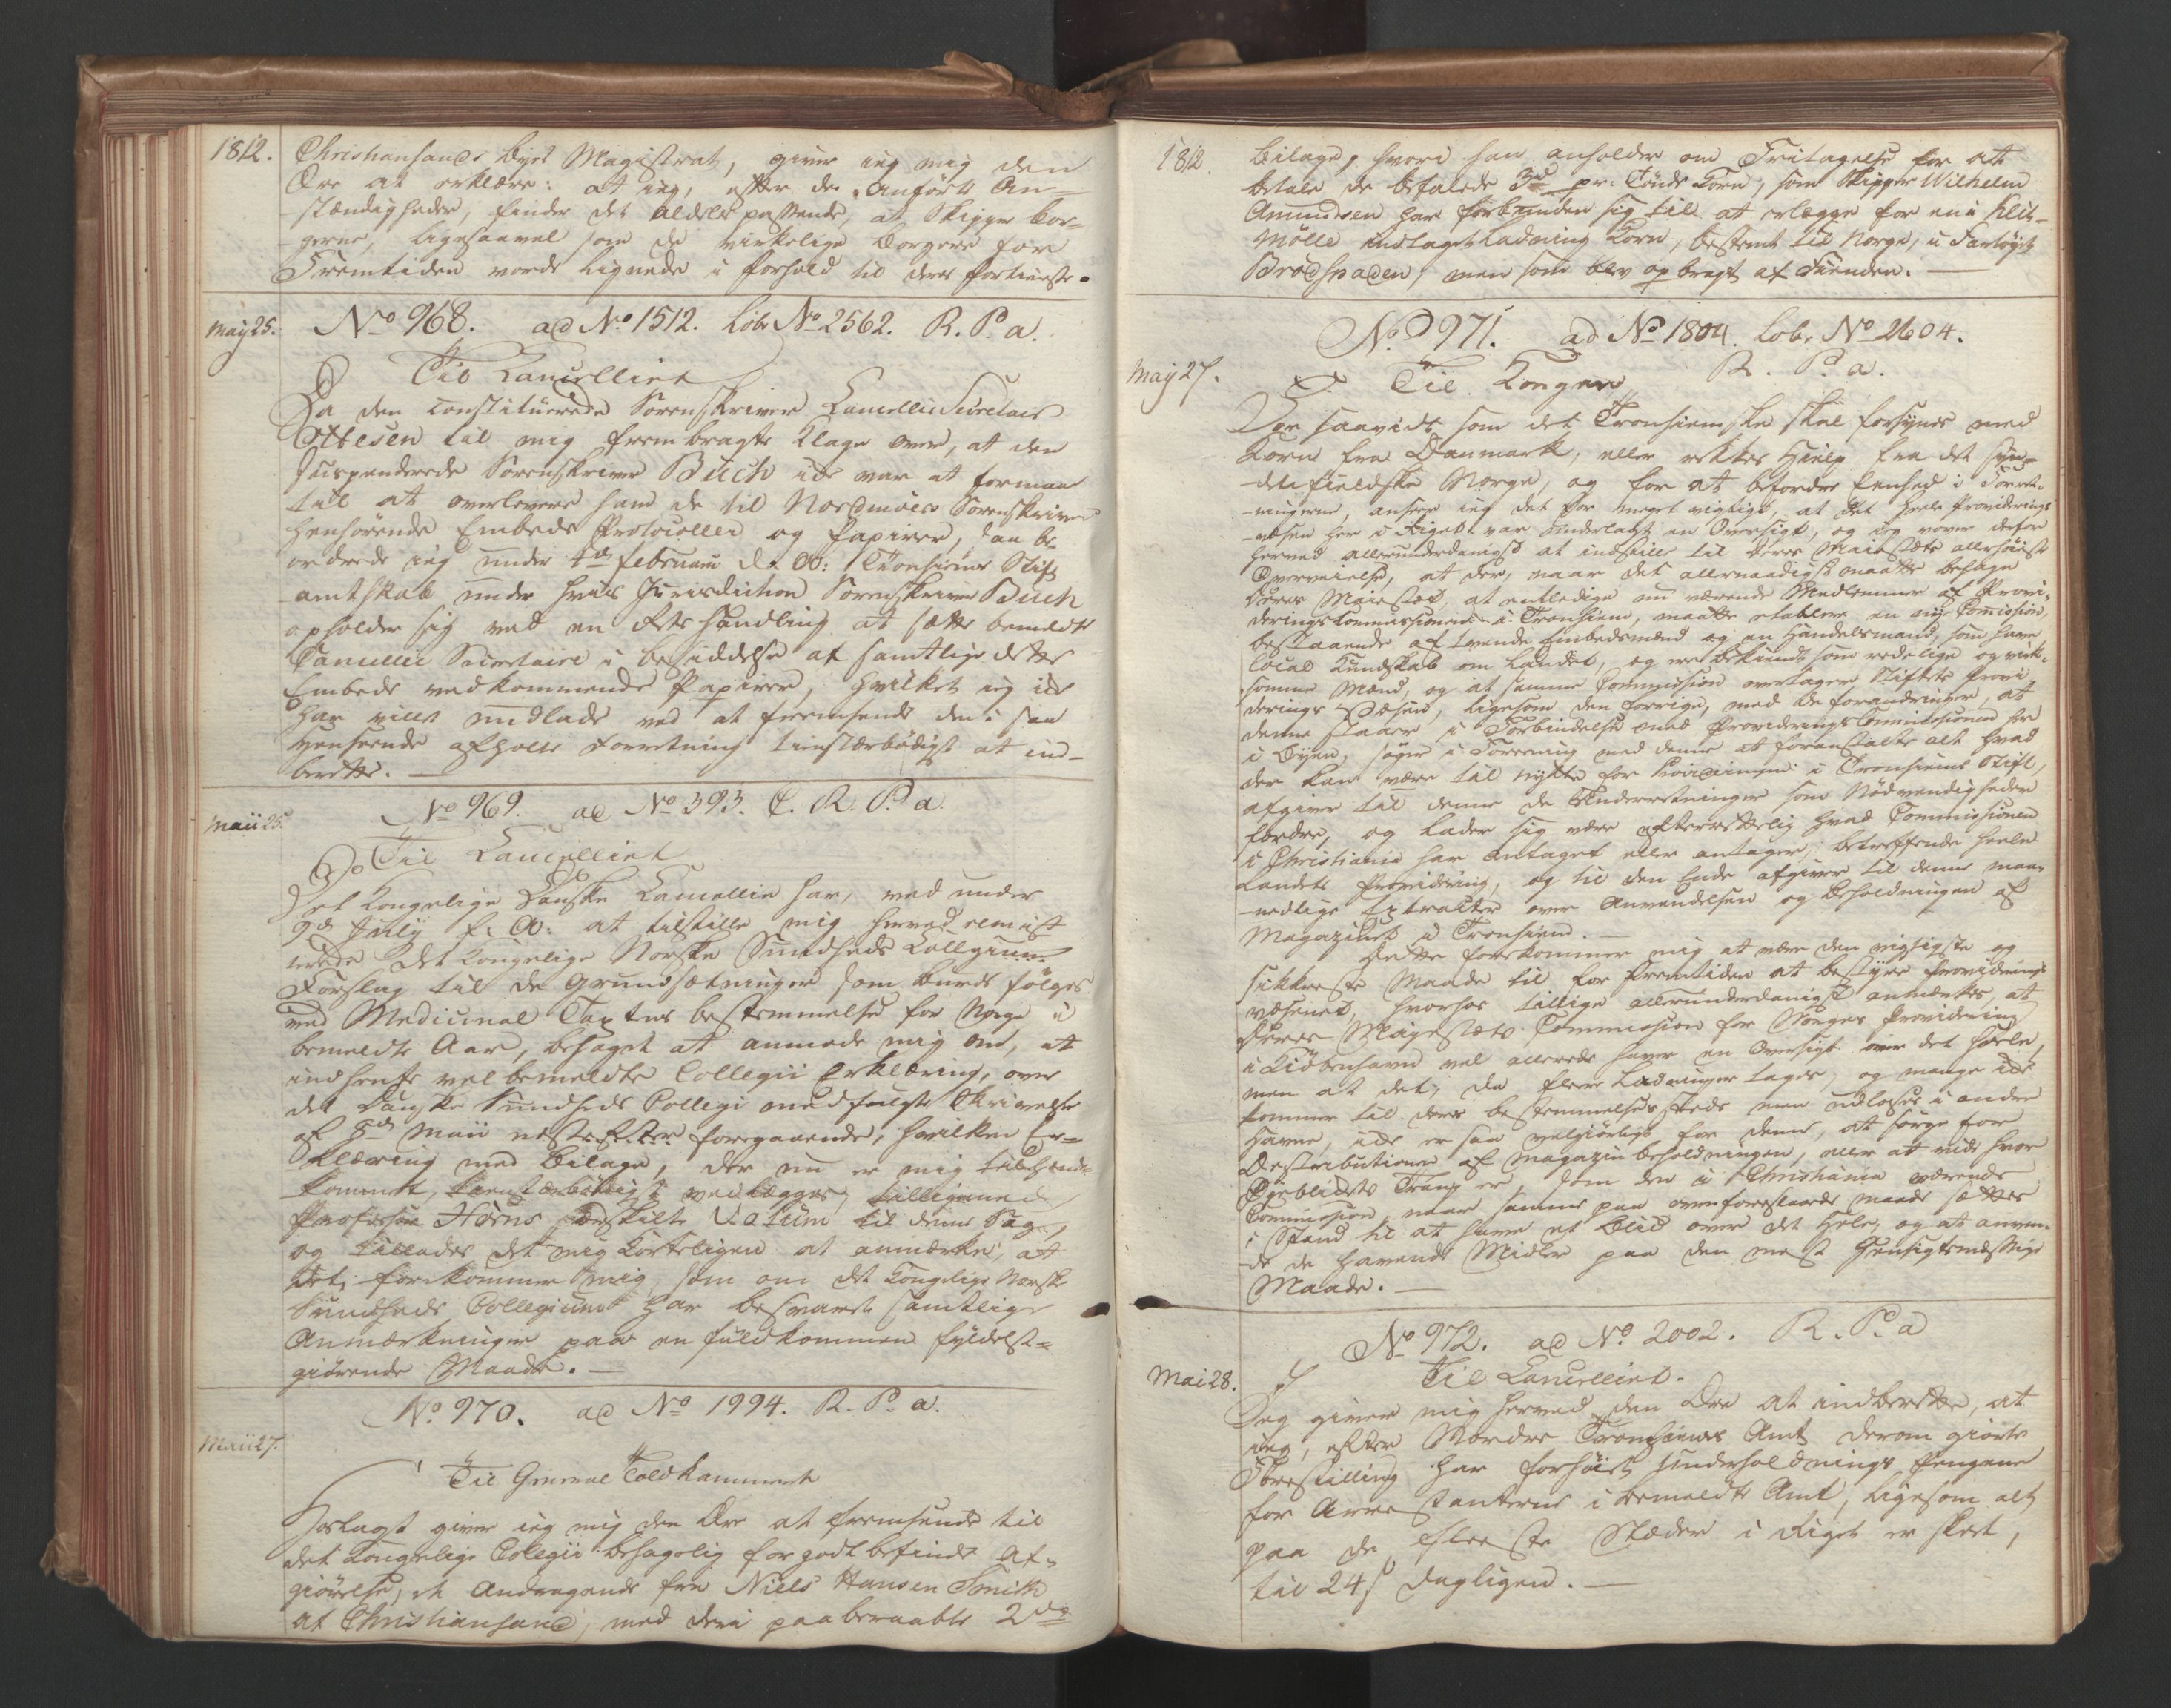 1812.
Christiansands Byes Magistrat, giver jeg mig den
Ære at erklære: at jeg, efter de anførte Om-
stændigheder, finder det aldeles passende, at Skipper Bor-
gerne, ligesaavel som de virkelige Borgere for
Fremtiden vorde lignede i Forhold til deres Fortieneste.
May 25.
No 968. ad No 1512. Lobr No 2562. R. P. a.
Til Cancelliet
Da den constituerede Sorenskriver Cancellie Secretair
Ottesen til mig frembragte Klage over, at den
suspenderede Sorenskriver Buch ikke var at formaae
til at overlevere ham de til Nordmøers Sorenskriver
henhørende Embeds Protocoller og Papirer, saa be-
ordrede jeg under 4de Februarii d. A: Tronhiems Stift
amtskab under hvis Jurisdiction Sorenskriver Buch
opholder sig ved en Retshandling at sætte bemeldte
Cancellie Secretaire i Besiddelse af samtlige dette
Embede vedkommende Papirer, hvilket jeg ikke
har villet undlade ved at fremsende den i saa
Henseende afholte Forretning tienstærbødigst at ind-
berette.
Maii 25.
No 969. ad No 393. C. R. P. a.
Til Cancelliet
Det Kongelige Danske Cancellie har, ved under
9de July f. A: at tilstille mig hermed remit-
terede det Kongelige Norske Sundheds Collegiums
Forslag til de Grundsætninger som burde følges
ved Medicinal Taxtens bestemmelse for Norge i
bemeldte Aar, behaget at anmode mig om, at
indhente velbemeldte Collegii Erklæring, over
det Danske Sundheds Collegi medfulgte Skrivelse
af 8de Maii nestefter foregaaende, hvilken Er-
klæring med Bilage, der nu er mig tilhænde
kommet, tienstærbødigst vedlægges, tilligemed
Professor Horns særskilte Votum til denne Sag,
og tillades det mig korteligen at anmærke, at
det forekommer mig som om det Kongelige Norske
Sundheds Collegium har besvaret samtlige
Anmærkninger paa en fuldkommen fyldest-
giørende Maade.
No 970. ad No 1994. R. P. a.
Maii 27.
Til General Toldkammeret
Hoslagt giver jeg mig den Ære at fremsende til
det Kongelige Collegii behagelig forgodtbefindende Af-
giørelse, et Andragende fra Niels Hansen Smith
af Christiansand, med deri paaberaabte 2de
1812.
Bilage, hvori han anholder om Fritagelse for at
betale de befalede 3rd pr: Tønde Korn, som Skipper Wilhelm
Amundsen har forbunden sig til at erlægge for en i Klit-
mølle indtaget Ladning Korn, bestemt til Norge, i Fartøyet
Brødspaden, men som blev opbragt af Fienden.
No 971. ad No 1804. Lobr No 2604.
May 27.
Til Kongen R. P. a.
For saavidt som det Tronhiemske skal forsynes med
Korn fra Danmark, eller rekkes Hielp fra det syn-
denfieldske Norge, og for at befordre Eenhed i Forret-
ningerne, anseer jeg det for meget vigtigt, at det hele Providerings
væsen her i Riget var underlagt en Oversigt, og jeg vover derfor
herved allerunderdanigst at indstille til Deres Maiestæts allerhøieste
Overveielse, at der, naar det allernaadigst maatte behage
Deres Maiestæt, at entledige nu værende Medlemmer af Provi-
derings Commissionen i Tronhiem, maatte etablere en nye Commission,
bestaaende af tvende Embedsmænd og en Handelsmand, som have
local Kundskab om Landet, og ere bekiendt som redelige og virk-
somme Mænd, og at samme Commission overtager Stiftets Provi-
derings Væsen, ligesom den forrige, med de Forandringer, at
denne staaer i Forbindelse med Providerings Commissionen her
i Byen, søger i Forening med denne at foranstalte alt hvad
der kan være til Nytte for Provideringen i Tronhiems Stift,
afgiver til denne de Underretninger som Nødvendigheden
fordrer, og lader sig være efterrettelig hvad Commissionen
i Christiania har antaget eller antager, betreffende heele
Landets Providering, og til den Ende afgiver til denne maa-
nedlige Extracter over Anvendelsen og Beholdningen af
Magazinet i Tronhiem.
Dette forekommer mig at være den vigtigste og
sikkerste Maade til for Fremtiden at bestyre Providerings
væsenet, hvorhos tillige allerunderdanigst anmærkes, at
Deres Mayestæts Commission for Norges Providering
i Kiøbenhavn vel allerede haver en Oversigt over det Heele,
men at det, da flere Ladninger tages, og mange ikke
kommer til deres bestemmelsessteds men udlosses i andre
Havne, ikke er saa velgiørligt for denne, at sørge for
Destributionen af Magazin beholdningen, eller at vide hvor
Øyeblikets Trang er, som den i Christiania værende
Commission, naar samme paa ovenforeslaaede Maade sættes
i Stand til at have et Blik over det Hele, og at anven-
de de havende Midler paa den mest Hensigtsmæssige
Maade.
No 972. ad No 2002. R. P. a
Mai 28.
Til Cancelliet.
Jeg giver mig herved den Ære at indberette, at
jeg, efter Nordre Tronhiems Amt derom giorte
Forestilling har forhøiet Underholdnings Pengene
for Arrestanterne i bemeldte Amt, ligesom alt
paa de fleeste Stæder i Riget er skeet,
til 24 s daglig en.